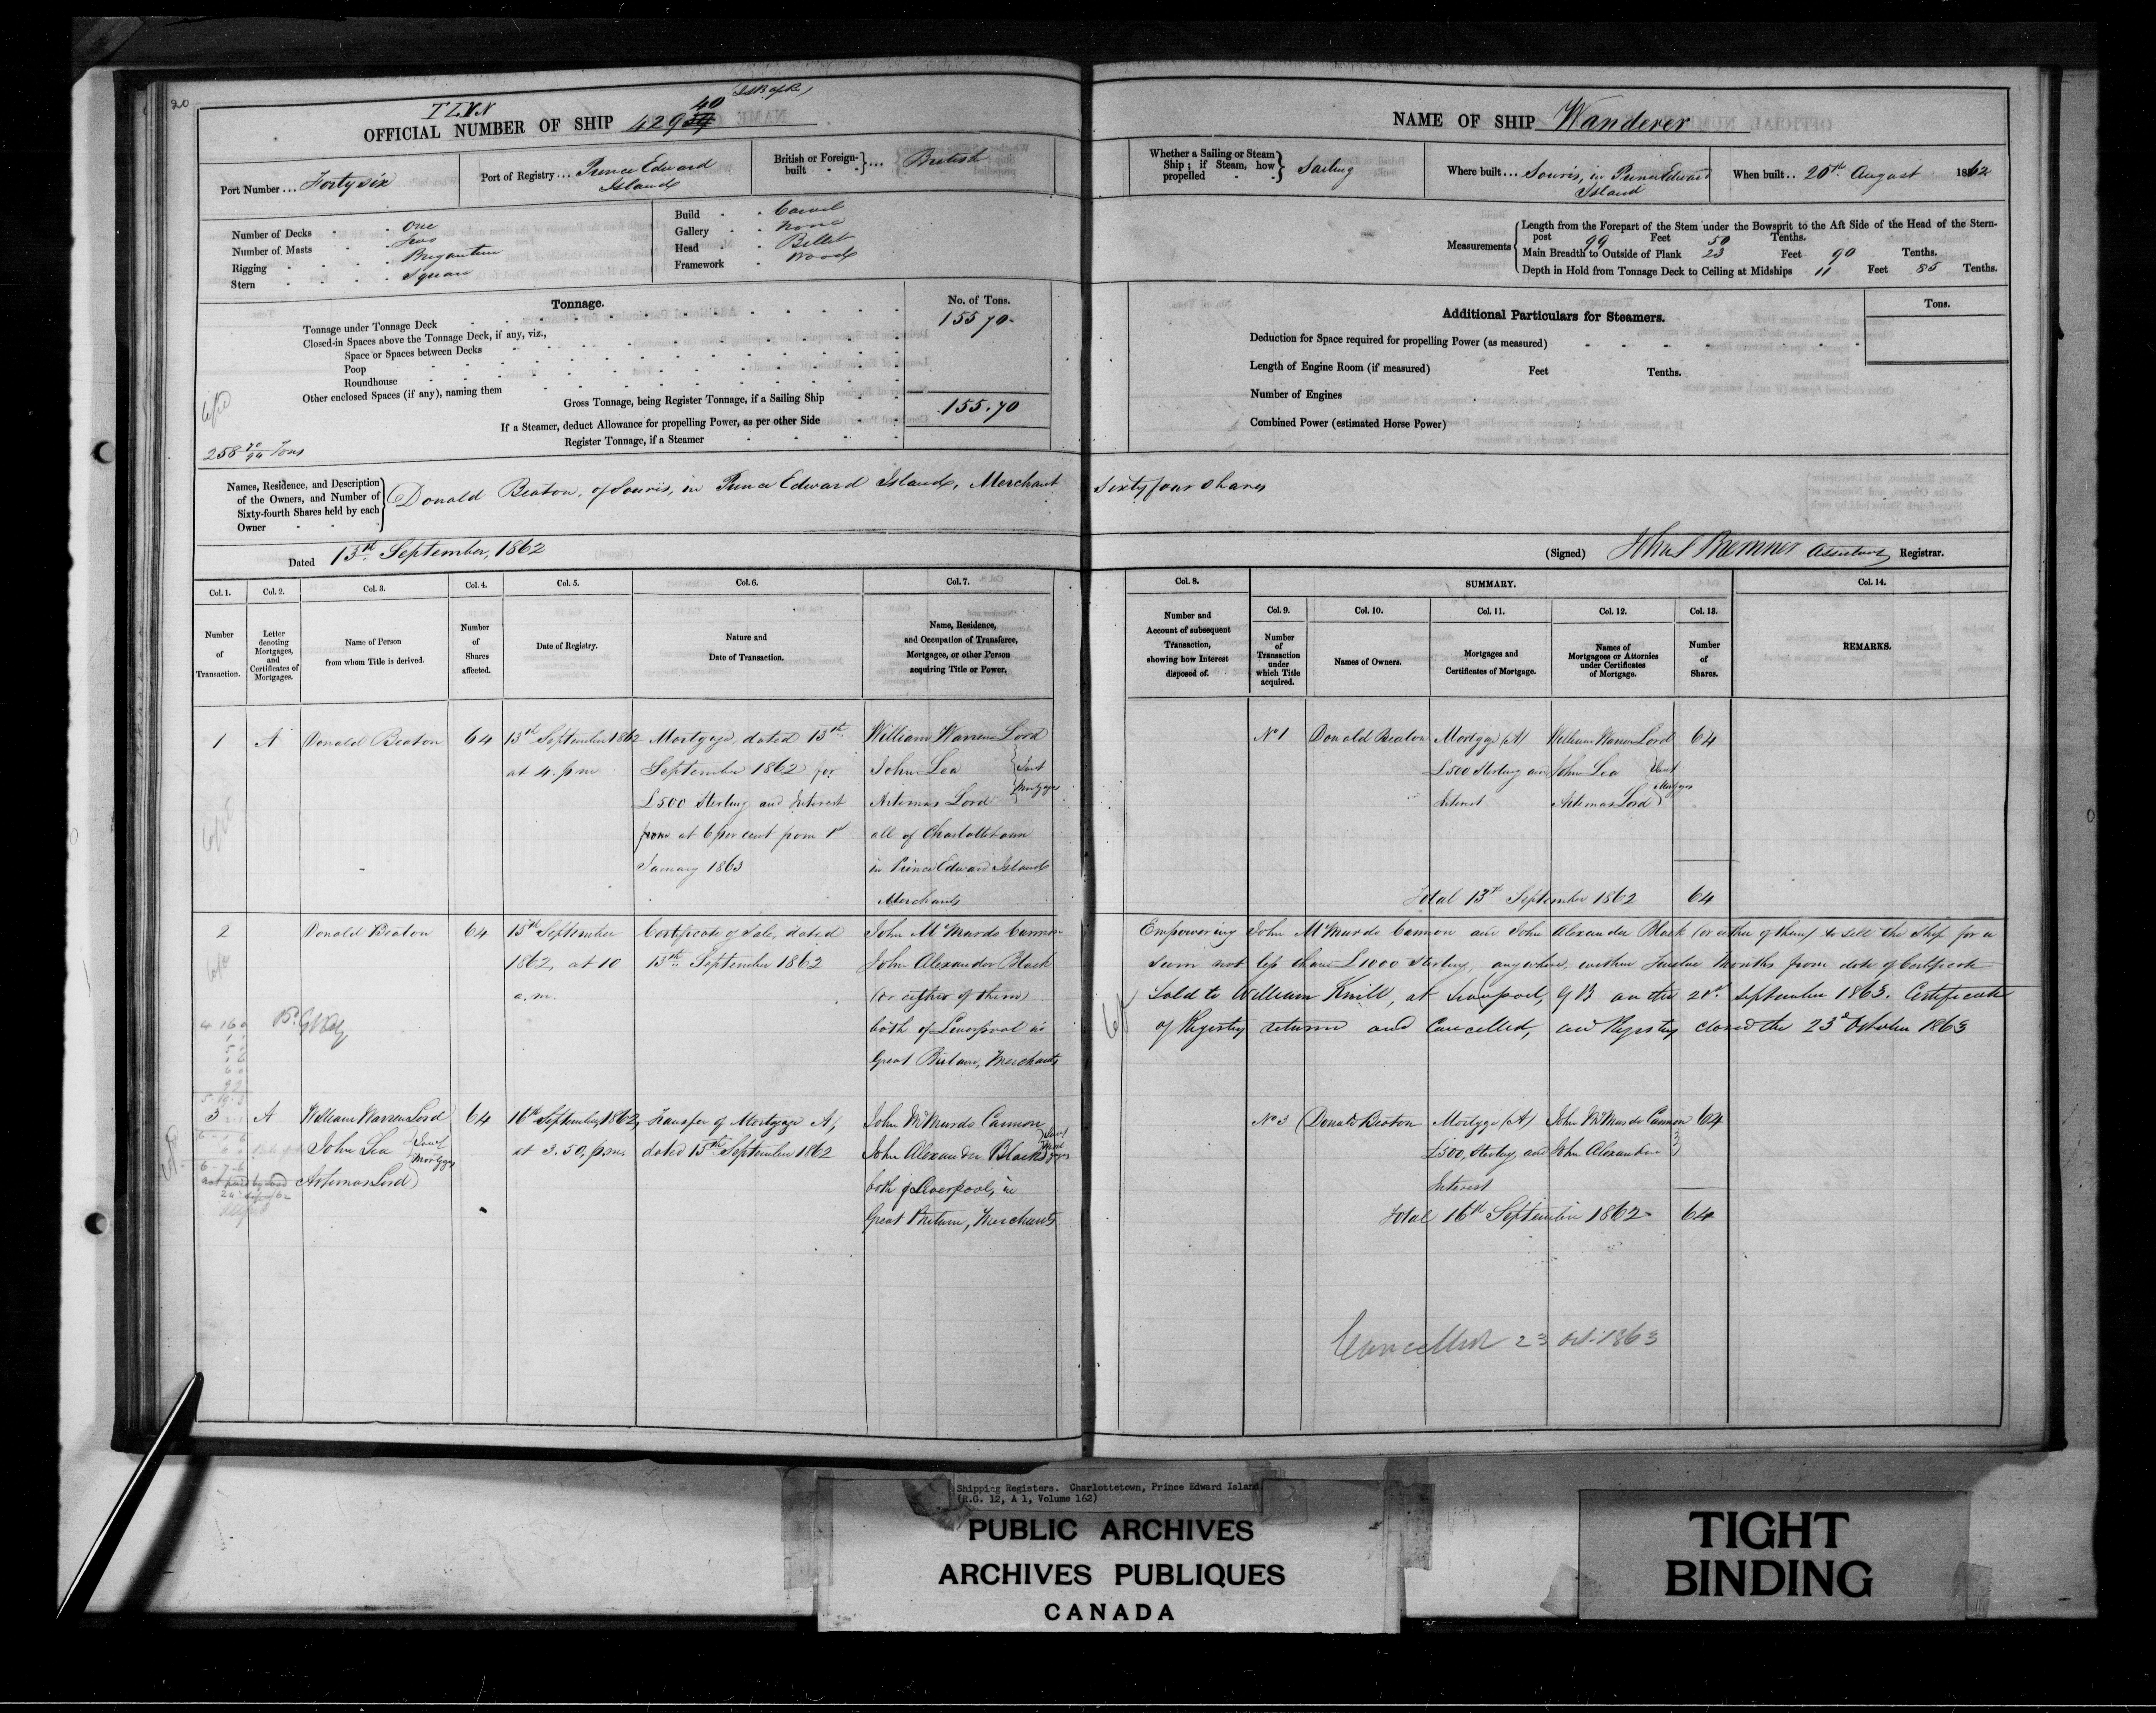 20
T L V N
40
OFFICIAL NUMBER OF SHIP 429
NAME OF SHIP Wanderer
Port Number ... Forty six
Port of Registry ... Prince Edward Island
British or Foreign-built ... British
Whether a Sailing or Steam Ship; if Steam, how propelled Sailing
Where built ... Souris, in Prince Edward Island
When built .. 20th August 1862
Number of Decks One
Number of Masts Two
Rigging Brigantine
Stern Square
Build Carvel
Gallery None
Head Billet
Framework Wood
Measurements
Length from the Forepart of the Stem under the Bowsprit to the Aft Side of the Head of the Stern-
post 99 Feet 50 Tenths.
Main Breadth to Outside of Plank 23 Feet 90 Tenths.
Depth in Hold from Tonnage Deck to Ceiling at Midships 11 Feet 85 Tenths.
Tonnage.
No. of Tons.
Tonnage under Tonnage Deck 155 70
Closed-in Spaces above the Tonnage Deck, if any, viz.,
Space or Spaces between Decks
Poop
Roundhouse
Other enclosed Spaces (if any), naming them
Gross Tonnage, being Register Tonnage, if a Sailing Ship 155.70
If a Steamer, deduct Allowance for propelling Power, as per other Side
Register Tonnage, if a Steamer
258 70/94 Tons
Additional Particulars for Steamers.
Tons.
Deduction for Space required for propelling Power (as measured)
Length of Engine Room (if measured) Feet Tenths.
Number of Engines
Combined Power (estimated Horse Power)
Names, Residence, and Description
of the Owners, and Number of
Sixty-fourth Shares held by each
Owner
Donald Beaton, of Souris, in Prince Edward Island, Merchant Sixty four Shares
Dated 13th September, 1862
(Signed) Bremner Assistant Registrar.
Col. 1.
Number
of
Transaction.
Col. 2.
Letter
denoting
Mortgages,
and
Certificates of
Mortgages.
Col. 3.
Name of Person
from whom Title is derived.
Col. 4.
Number
of
Shares
affected.
Col. 5.
Date of Registry.
Col. 6.
Nature and
Date of Transaction.
Col. 7.
Name, Residence,
and Occupation of Transferee,
Mortgagee, or other Person
acquiring Title or Power.
Col. 8.
Number and
Account of subsequent
Transaction,
showing how Interest
disposed of.
SUMMARY.
Col. 9.
Number
of
Transaction
under
which Title
acquired.
Col. 10.
Names of Owners.
Col. 11.
Mortgages and
Certificates of Mortgage.
Col. 12.
Names of
Mortgagees or Attornies
under Certificates
of Mortgage.
Col. 13.
Number
of
Shares.
Col. 14.
REMARKS.
1
A
Donald Beaton
64
13th September 1862
at 4. p m
Mortgage, dated 13th
September 1862 for
£500 Sterling and Interest
from at 6 per cent from 1st
January 1863
William Warren Lord
John Lea
Artemas Lord
Joint
Mortgagees
all of Charlottetown
in Prince Edward Island
Merchants
No 1
Donald Beaton
Mortgage (A)
£500 Sterling and
Interest
William Warren Lord
John Lea
Artemas Lord
Joint
Mortgagees
64
Total 13th September 1862 64
2
Donald Beaton
64
15th September
1862, at 10
a.m.
Certificate of Sale, dated
13th September 1862
John McMurdo Cannon
John Alexander Black
(or either of them)
both of Liverpool in
Great Britain, Merchants
Empowering John McMurdo Cannon and John Alexander Black (or either of them) to sell the Ship for a
sum not less than £1000 Sterling, anywhere, within Twelve Months from date of Certificate
Sold to William Knill, at Liverpool, GB on the 21st September 1863. Certificate
of Registry returned and Cancelled, and Registry closed the 23d October 1863
3
A
William Warren Lord
John Lea
Artemas Lord
Joint
Mortgagees
64
16th September 1862,
at 3.50. p.m.
Transfer of Mortgage A,
dated 15th September 1862
John McMurdo Cannon
John Alexander Black
Joint
both of Liverpool, in
Great Britain, Merchants
No 3
Donald Beaton
Mortgage (A)
£500, Sterling and
Interest
John McMurdo Cannon
John Alexander
64
Total 16th September 1862 64
Cancelled 23 Oct. 1863
Shipping Registers. Charlottetown, Prince Edward Island
(R.G. 12, A 1, Volume 162)
PUBLIC ARCHIVES
ARCHIVES PUBLIQUES
CANADA
TIGHT
BINDING